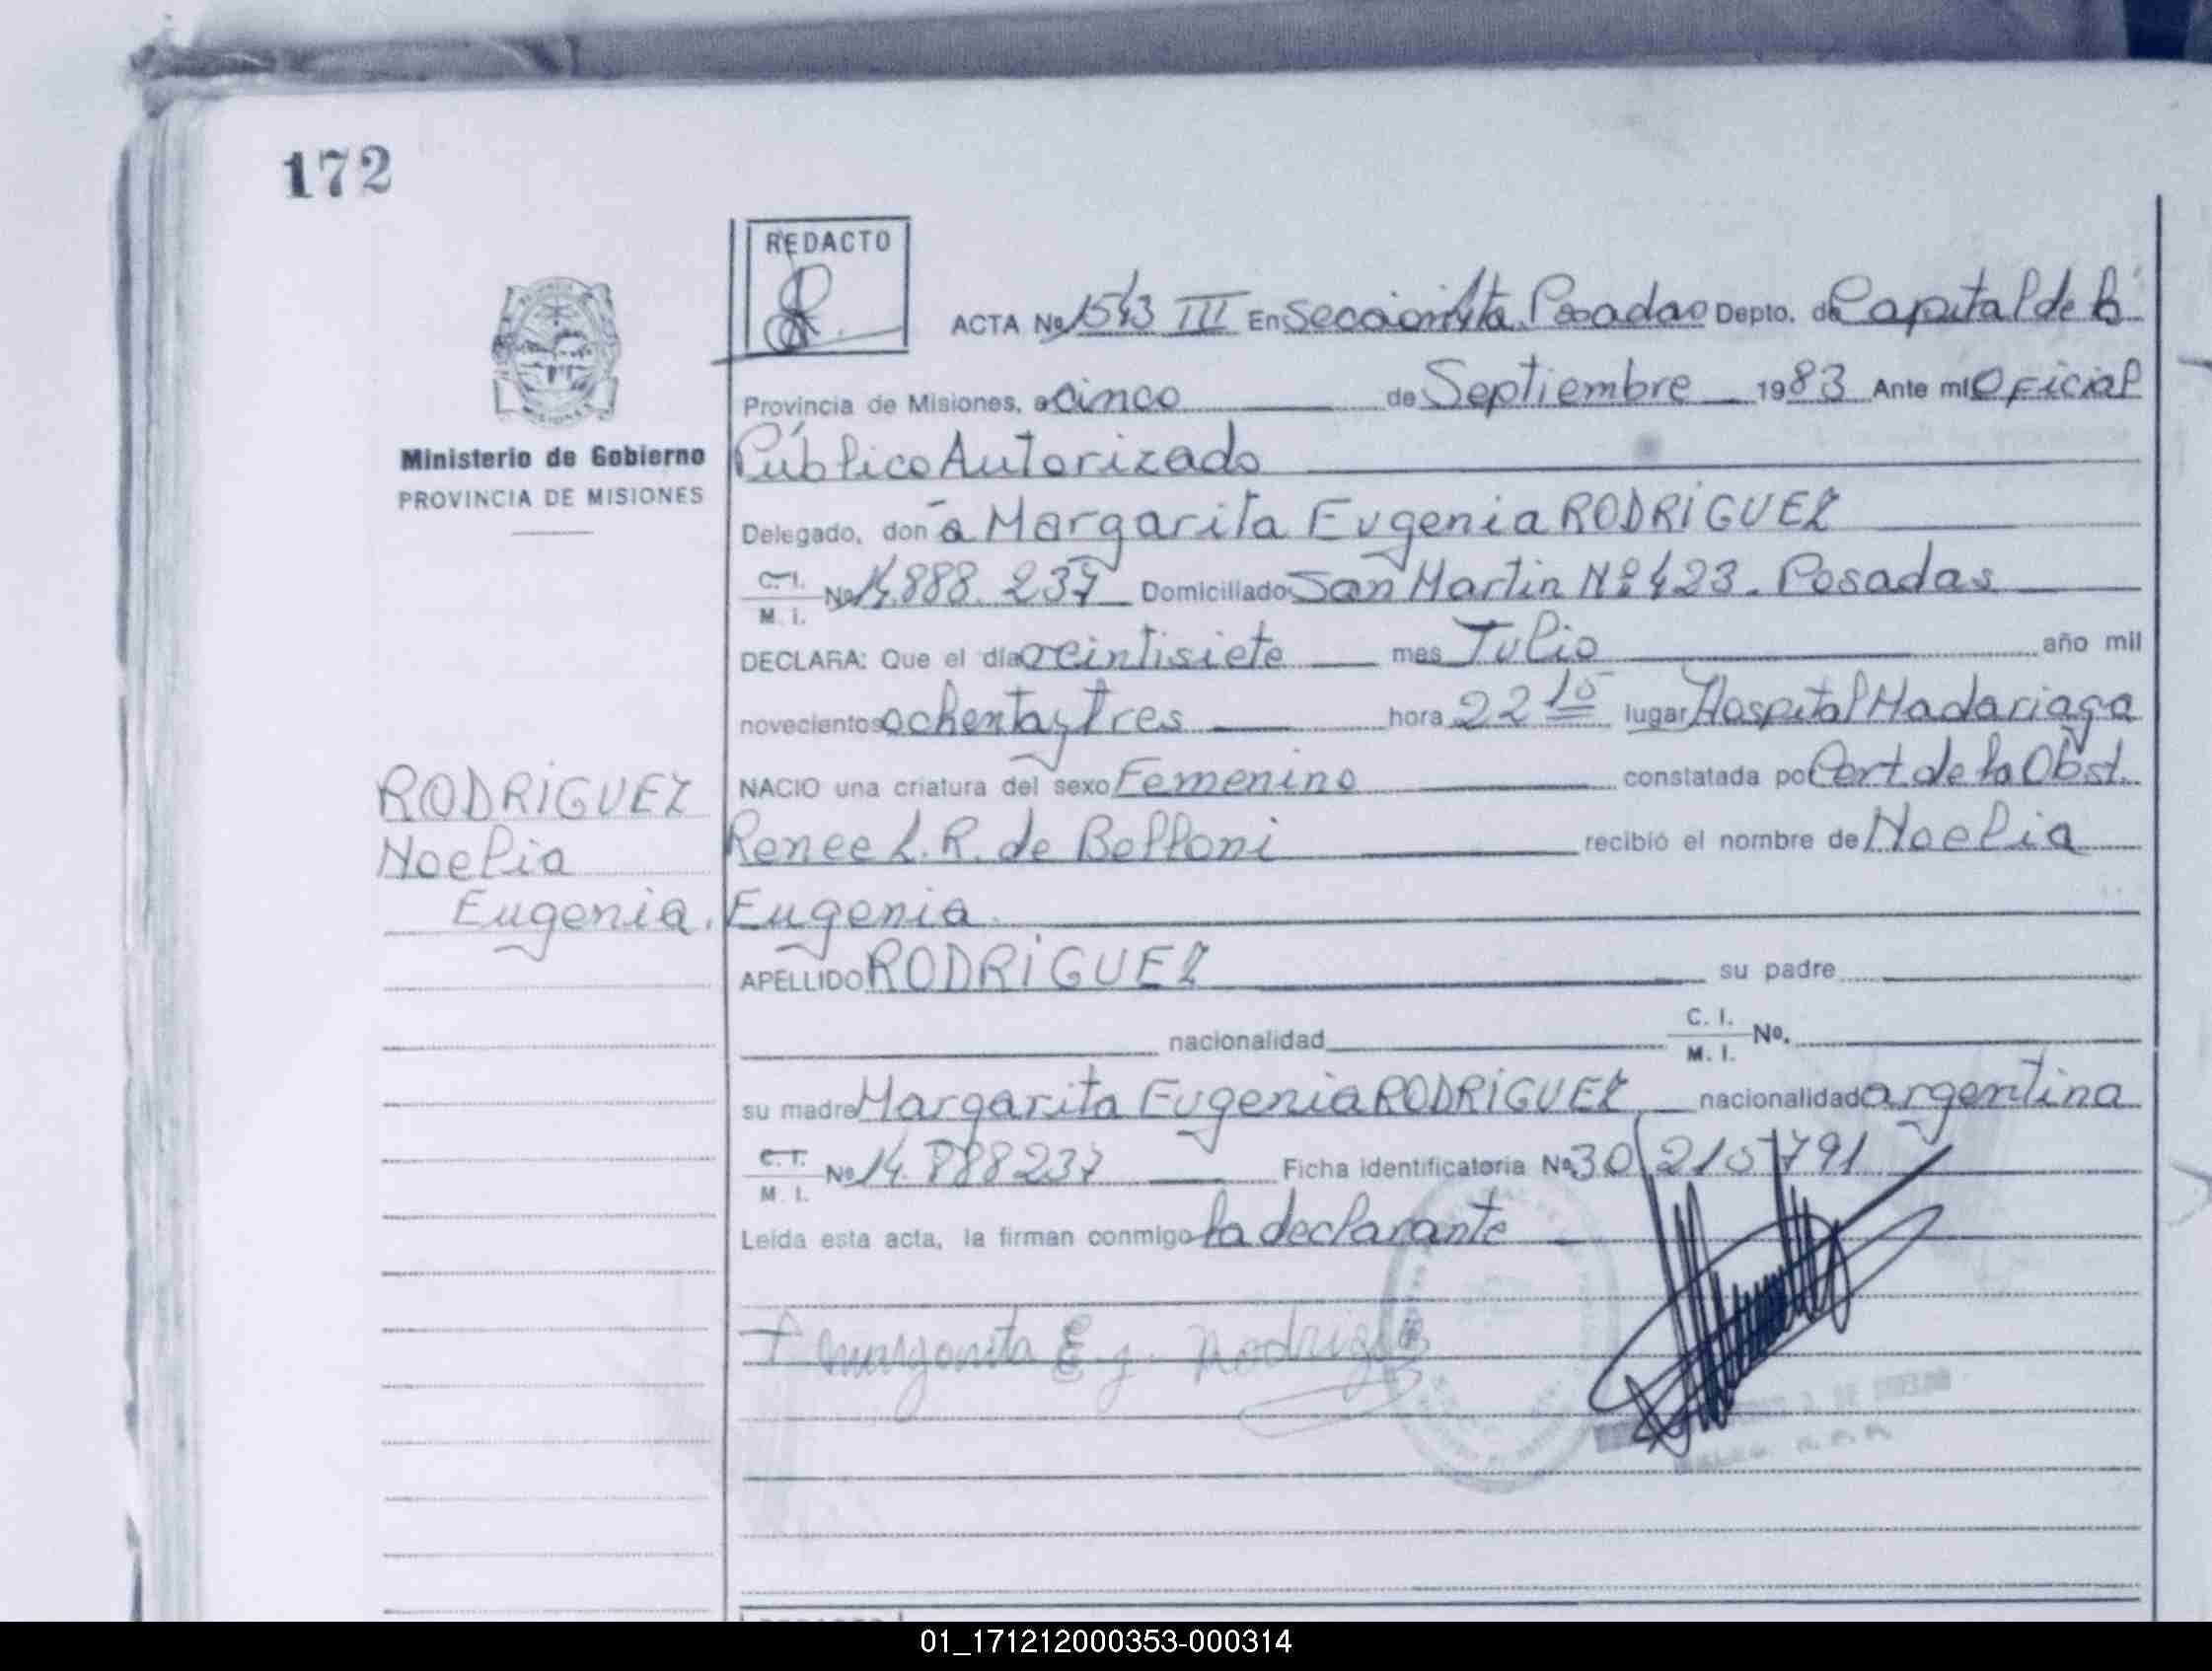 172
REDACTO
ACTA No 1543 III En Sección 1ta. Posadas Depto. de Capital de la
Provincia de Misiones, a cinco de Septiembre 1983 Ante mi Oficial
Ministerio de Gobierno
PROVINCIA DE MISIONES
Público Autorizado
Delegado, don a Margarita Eugenia RODRIGUEZ
C. I.
M. I. No 14.888.237 Domiciliado San Martin Nº 423. Posadas
DECLARA: Que el día veintisiete mes Julio año mil
novecientos ochenta y tres hora 22 15 lugar Hospital Madariaga
NACIO una criatura del sexo Femenino constatada po Cert. de la Obst.
RODRIGUEZ
Noelia
Eugenia.
Renee L. R. de Belloni recibió el nombre de Noelia
Eugenia.
APELLIDO RODRIGUEZ su padre
nacionalidad C. I.
M. I. No.
su madre Margarita Eugenia RODRIGUEZ nacionalidad argentina
C. I.
M. I. No 14.888237 Ficha identificatoria No 30 215 791
Leída esta acta, la firman conmigo la declarante
Margarita E. Rodriguez
01_171212000353-000314